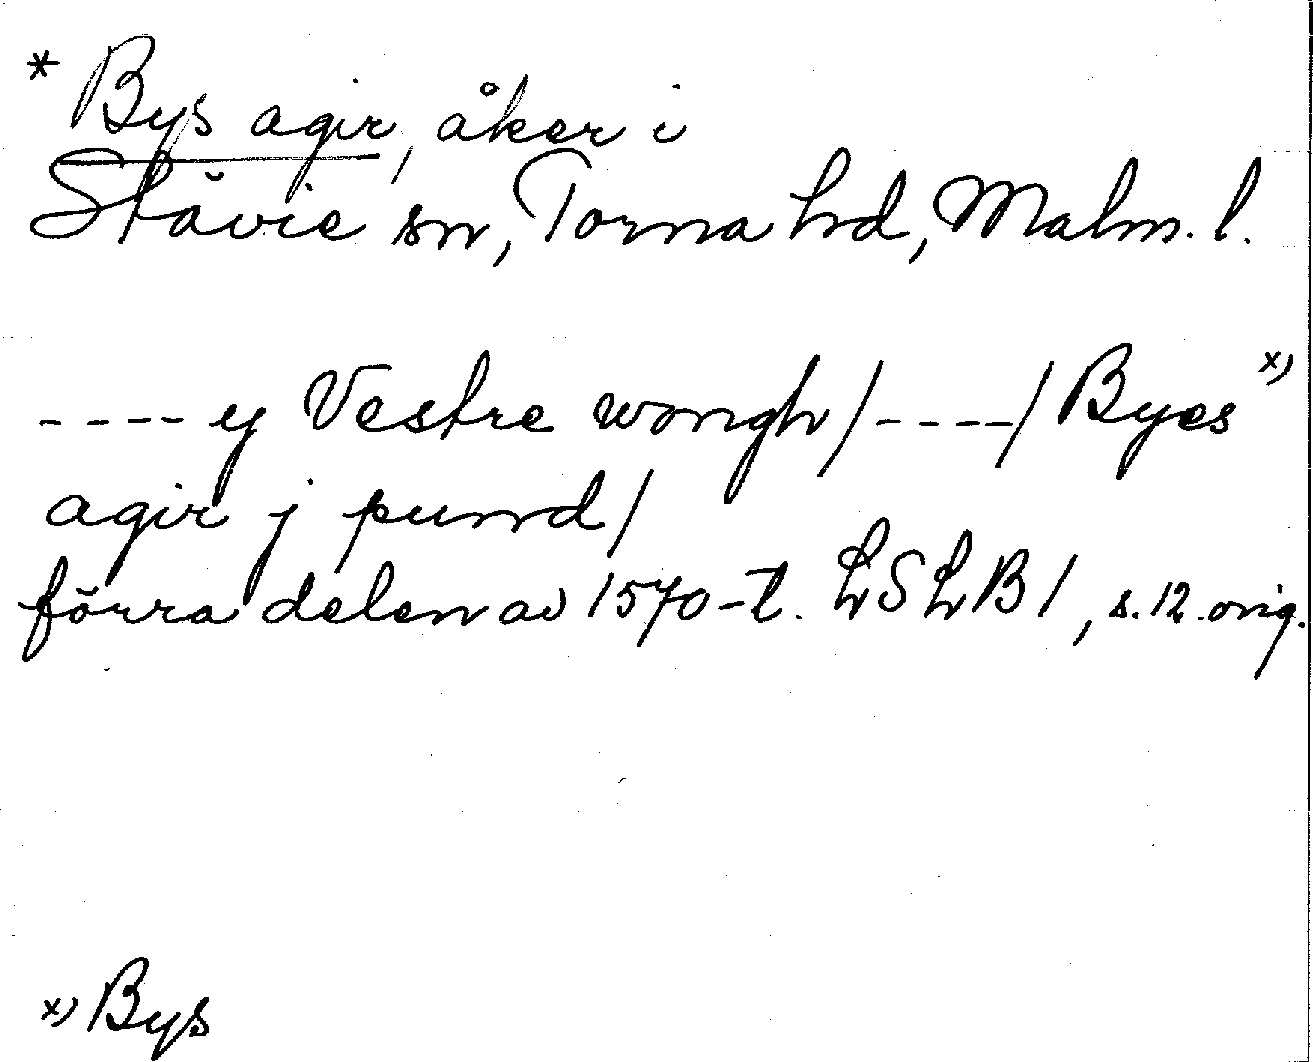 * Bys agir, åker i
Stävie sn, Torna hd, Malm. l.
---- y Vestre wongh/----/ Byes x)
agir j pund/
förra delen av 1570-t. LSLB 1, s. 12. orig.
x) Bys